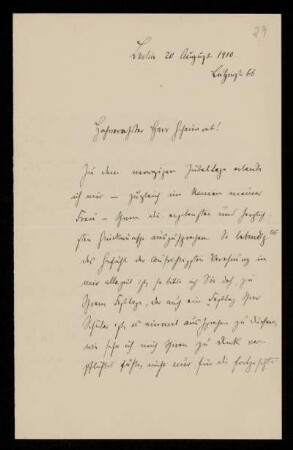 29
Berlin 20 August 1910
Lützowstr 66
Hochverehrter Herr Geheimrat!
Zu dem morgigen Jubeltage erlaube
ich mir – zugleich im Namen meiner
Frau – Ihnen die ergebensten und herzlich-
sten Glückwünsche auszusprechen. So lebendig
das Gefühl der aufrichtigsten Verehrung in
mir allezeit ist, so bitte ich Sie doch, zu
Ihrem Festtage, der auch ein Festtag Ihrer
Schüler ist, es einmal aussprechen zu dürfen,
wie sehr ich mich Ihnen zu Dank ver-
pflichtet fühle, nicht nur für die fortgesetzte